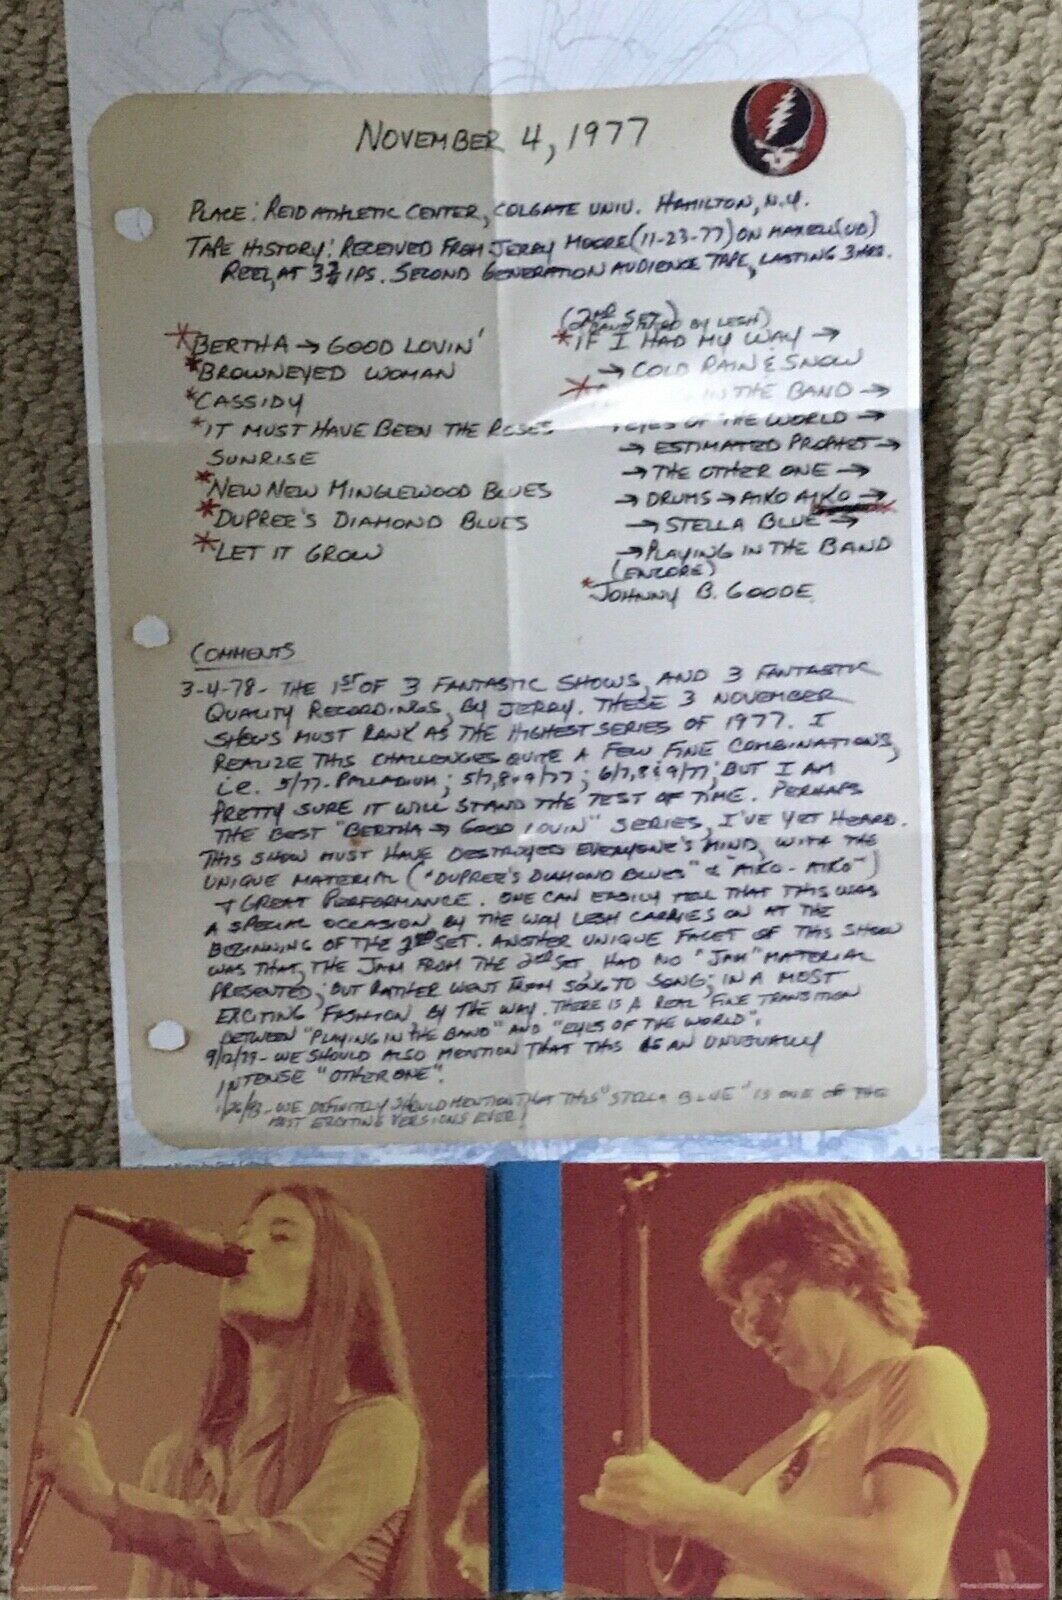 NOVEMBER 4, 1977
PLACE: REID ATHLETIC CENTER, COLGATE UNIV. HAMILTON, N.Y.
TAPE HISTORY: RECEIVED FROM JERRY MOORE (11-23-77) ON MAXELL (UD)
REEL, AT 3¾ IPS. SECOND GENERATION AUDIENCE TAPE, LASTING 3 HRS.
*BERTHA → GOOD LOVIN'
*BROWNEYED WOMAN
*CASSIDY
*IT MUST HAVE BEEN THE ROSES
SUNRISE
*NEW NEW MINGLEWOOD BLUES
*DUPREE'S DIAMOND BLUES
*LET IT GROW
(2ND SET)
BY LESH)
*IF I HAD MY WAY →
→ COLD RAIN & SNOW
* IN THE BAND →
EYES OF THE WORLD →
→ ESTIMATED PROPHET →
→ THE OTHER ONE →
→ DRUMS → AIKO AIKO →
→ STELLA BLUE →
→ PLAYING IN THE BAND
(ENCORE)
*JOHNNY B. GOODE
COMMENTS
3-4-78- THE 1ST OF 3 FANTASTIC SHOWS, AND 3 FANTASTIC
QUALITY RECORDINGS, BY JERRY. THESE 3 NOVEMBER
SHOWS MUST RANK AS THE HIGHEST SERIES OF 1977. I
REALIZE THIS CHALLENGES QUITE A FEW FINE COMBINATIONS,
i.e. 5/77-PALLADIUM; 5/7,8&9/77; 6/7,8&9/77; BUT I AM
PRETTY SURE IT WILL STAND THE TEST OF TIME. PERHAPS
THE BEST "BERTHA → GOOD LOVIN" SERIES, I'VE YET HEARD.
THIS SHOW MUST HAVE DESTROYED EVERYONE'S MIND, WITH THE
UNIQUE MATERIAL ("DUPREE'S DIAMOND BLUES" & "AIKO-AIKO")
+ GREAT PERFORMANCE. ONE CAN EASILY TELL THAT THIS WAS
A SPECIAL OCCASION BY THE WAY LESH CARRIES ON AT THE
BEGINNING OF THE 2ND SET. ANOTHER UNIQUE FACET OF THIS SHOW
WAS THAT, THE JAM FROM THE 2ND SET, HAD NO "JAM" MATERIAL
PRESENTED; BUT RATHER WENT FROM SONG TO SONG; IN A MOST
EXCITING FASHION BY THE WAY. THERE IS A REAL FINE TRANSITION
BETWEEN "PLAYING IN THE BAND" AND "EYES OF THE WORLD".
9/12/79- WE SHOULD ALSO MENTION THAT THIS IS AN UNUSUALLY
INTENSE "OTHER ONE".
1/26/93- WE DEFINITELY SHOULD MENTION THAT THIS "STELLA BLUE" IS ONE OF THE
MOST EXCITING VERSIONS EVER!